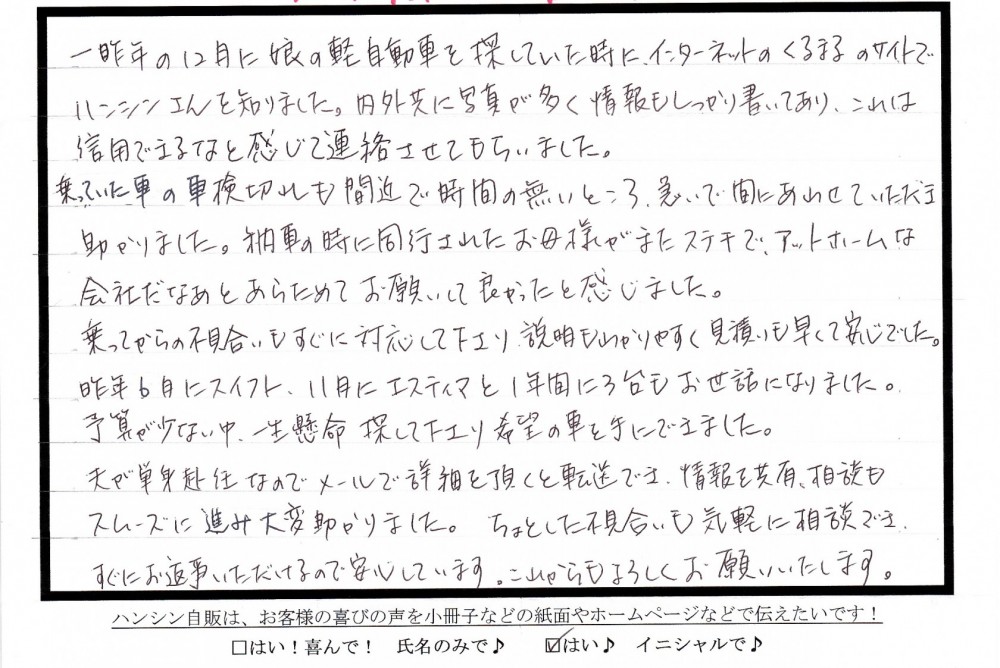 一昨年の12月に娘の軽自動車を探していた時に、インターネットのくるまるのサイトで
ハンシンさんを知りました。内外共に写真が多く情報もしっかり書いてあり、これは
信用できるなと感じて連絡させてもらいました。
乗っていた車の車検切れも間近で時間の無いところ、急いで間にあわせていただき
助かりました。納車の時に同行されたお母様がまたステキで、アットホームな
会社だなあとあらためてお願いして良かったと感じました。
乗ってからの不具合いもすぐに対応して下さり、説明もわかりやすく見積いも早くて安心でした。
昨年6月にスイフト、11月にエスティマと1年間に3台もお世話になりました。
予算が少ない中、一生懸命探して下さり希望の車を手にできました。
夫が単身赴任なのでメールで詳細を頂くと転送でき、情報を共有、相談も
スムーズに進み大変助かりました。ちょとした不具合いも気軽に相談でき、
すぐにお返事いただけるので安心しています。これからもよろしくお願いいたします。
ハンシン自販は、お客様の喜びの声を小冊子などの紙面やホームページなどで伝えたいです！
□はい！喜んで！ 氏名のみで♪ ☑はい♪ イニシャルで♪